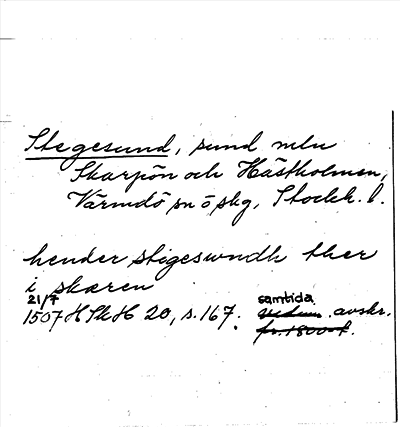 Stegesund, sund mln
Skarpön och Hästholmen,
Värmdö sn o skg, Stockh. l.
hender stigeswndh ther
i skæren
21/7 samtida
1507 HSkH 20, s. 167. vidim. avskr.
fr. 1800-t.